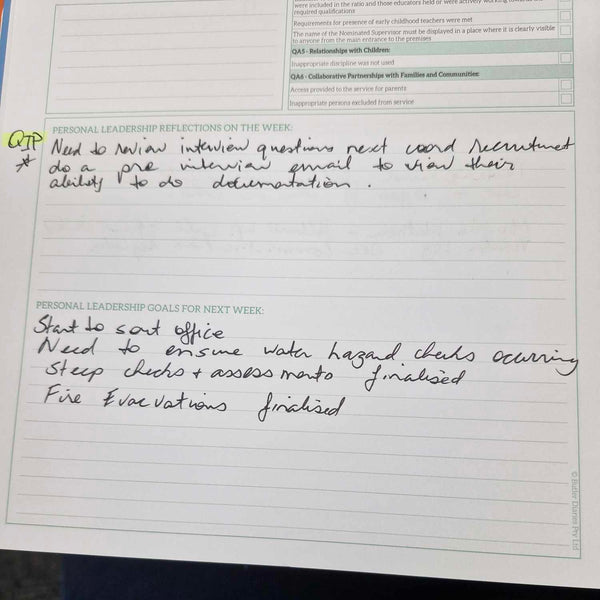 were included in the ratio and those educators held or were actively working towards the
required qualifications
Requirements for presence of early childhood teachers were met
The name of the Nominated Supervisor must be displayed in a place where it is clearly visible
to anyone from the main entrance to the premises
QA5 - Relationships with Children:
Inappropriate discipline was not used
QA6 - Collaborative Partnerships with Families and Communities:
Access provided to the service for parents
Inappropriate persons excluded from service
PERSONAL LEADERSHIP REFLECTIONS ON THE WEEK:
QIP Need to review interview questions next coord recruitment
* do a pre interview email to view their
ability to do documentation.
PERSONAL LEADERSHIP GOALS FOR NEXT WEEK:
Start to sort office
Need to ensure water hazard checks ocurring
Sleep checks + assessments finalised
Fire Evacuations finalised
© Butler Diaries Pty Ltd